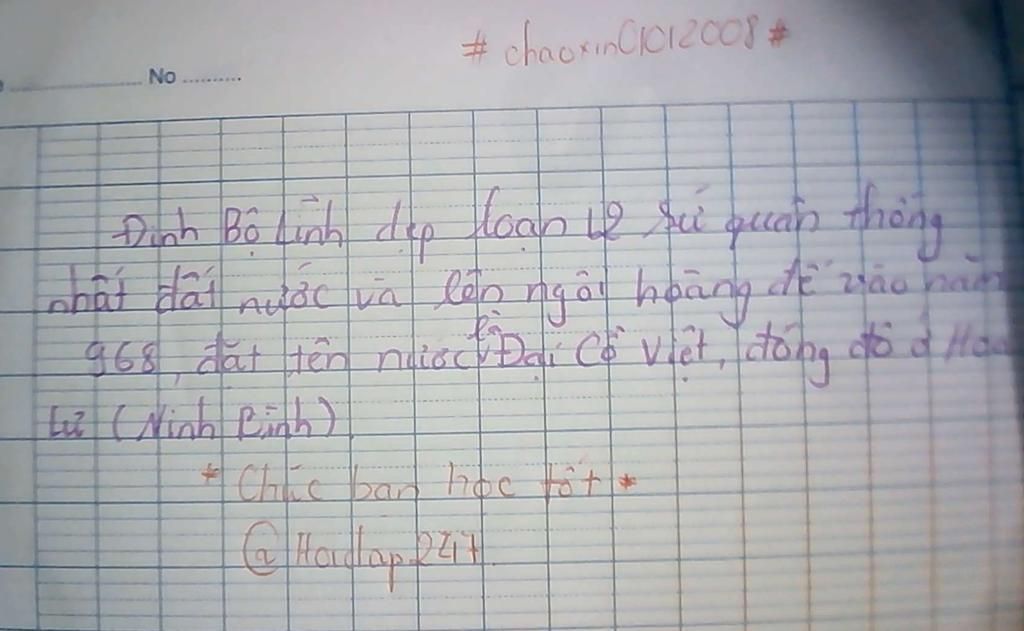 # chaoxin01012008 #
No
Đinh Bộ Lĩnh dẹp loạn 12 sứ quân thống
nhất đất nước và lên ngôi hoàng đế vào năm
968, đặt tên nước là Đại Cồ Việt, đóng đô ở Hoa
Lư (Ninh Bình)
* Chúc bạn học tốt *
@ Hoidap247